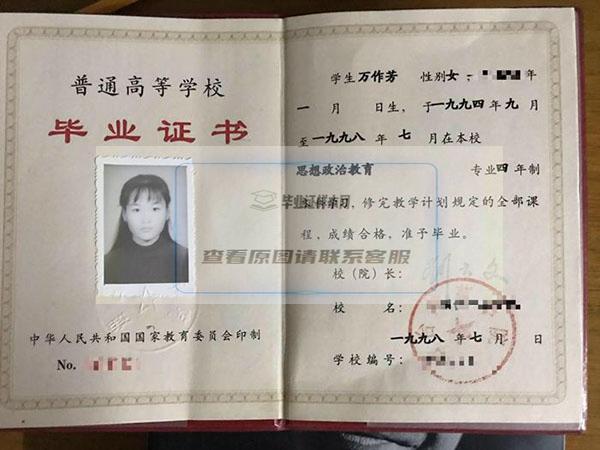 普通高等学校
毕业证书
中华人民共和国国家教育委员会印制
No.
学生 万作芳 性别 女, 年
一 月 日生, 于一九九四年九月
至一九九八年 七 月在本校
思想政治教育 专业四年制
本科学习, 修完教学计划规定的全部课
程, 成绩合格, 准予毕业。
校(院)长:
校 名:
一九九八年七月 日
学校编号:
毕业证样本网
查看原图请联系客服